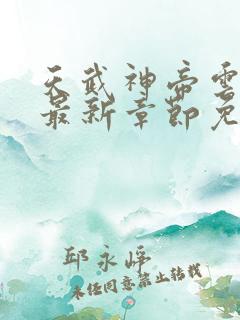 天武神帝雲
最新章節免
邱永崢
未经同意禁止转载